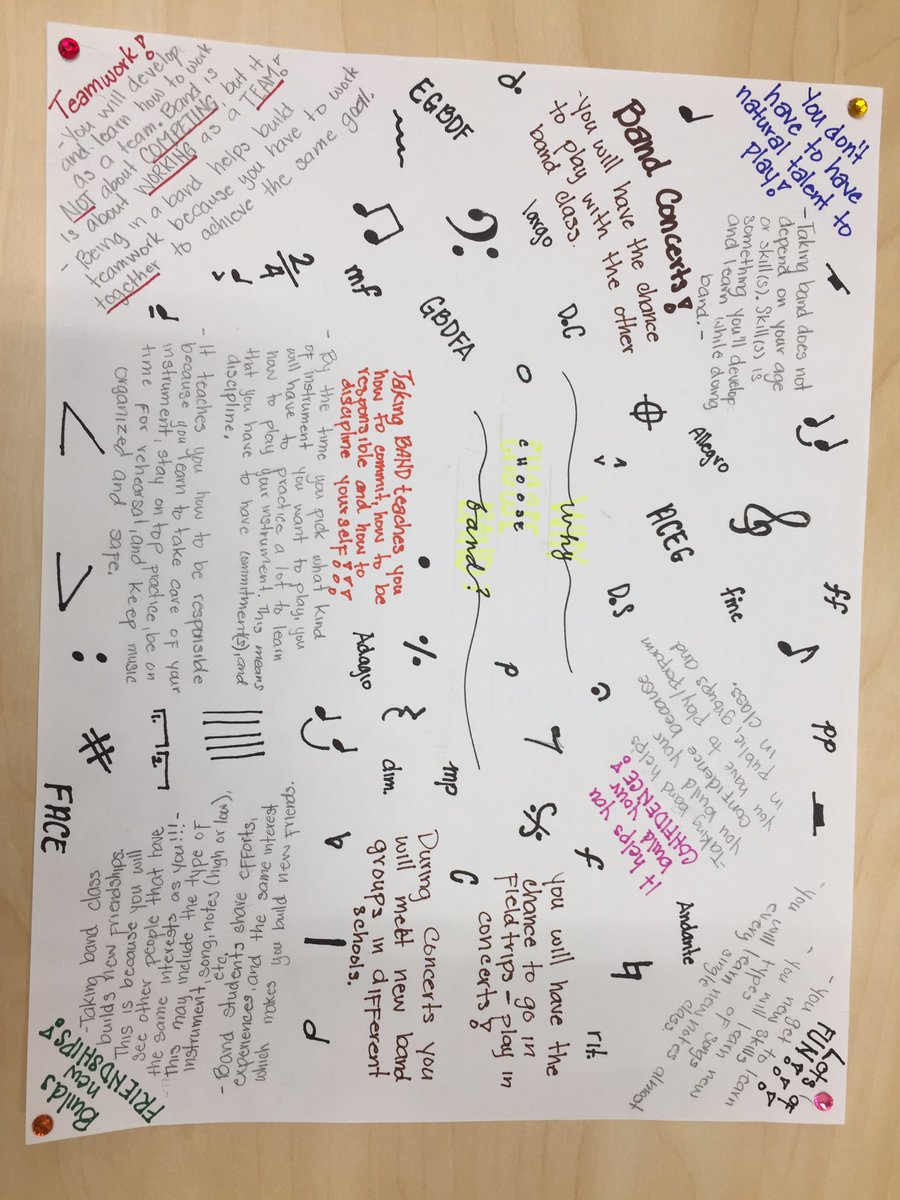 Why
CHOOSE
band?
Teamwork!
- You will develop
and learn how to work
as a team. Band is
NOT about COMPETING, but it
is about WORKING as a TEAM!
- Being in a band helps build
teamwork because you have to work
together to achieve the same goal.
EGBDF
Band Concerts!
- You will have the chance
to play with the other
band class.
largo
You don't
have to have
natural talent to
play!
- Taking band does not
depend on your age
or skill(s). Skill(s) is
something you'll develop
and learn while doing
band. -
2/4
mf
GBDFA
D.C
Allegro
ACEG
fine
D.S
ff
pp
p
mp
dim.
Adagio
Taking BAND teaches you
how to commit, how to be
responsible and how to
discipline yourself!!!
- By the time you pick what kind
of instrument you want to play, you
will have to practice a lot to learn
how to play your instrument. This means
that you have to have commitment(s), and
discipline.
- It teaches you how to be responsible
because you learn to take care of your
instrument, stay on top practice, be on
time for rehersal, and keep music
organized and safe.
It helps you
build your
CONFIDENCE!
- Taking band helps
you build your
confidence because
you have to play/perform
in public, groups and
in class.
FACE
Builds
new
FRIENDSHIPS!
- Taking band class
builds new friendships.
This is because you will
see other people that have
the same interests as you!!! -
- This may include the type of
instrument, song, notes (high or low),
etc.
- Band students share efforts,
experiences, and the same interest
which makes you build new friends.
During Concerts you
will meet new band
groups in different
schools.
C
f
You will have the
chance to go in
Fieldtrips - play in
concerts!
rit.
Andante
FUN
- You get to learn
new skills
- You will learn new
types of songs
- You will learn new notes almost
every single class